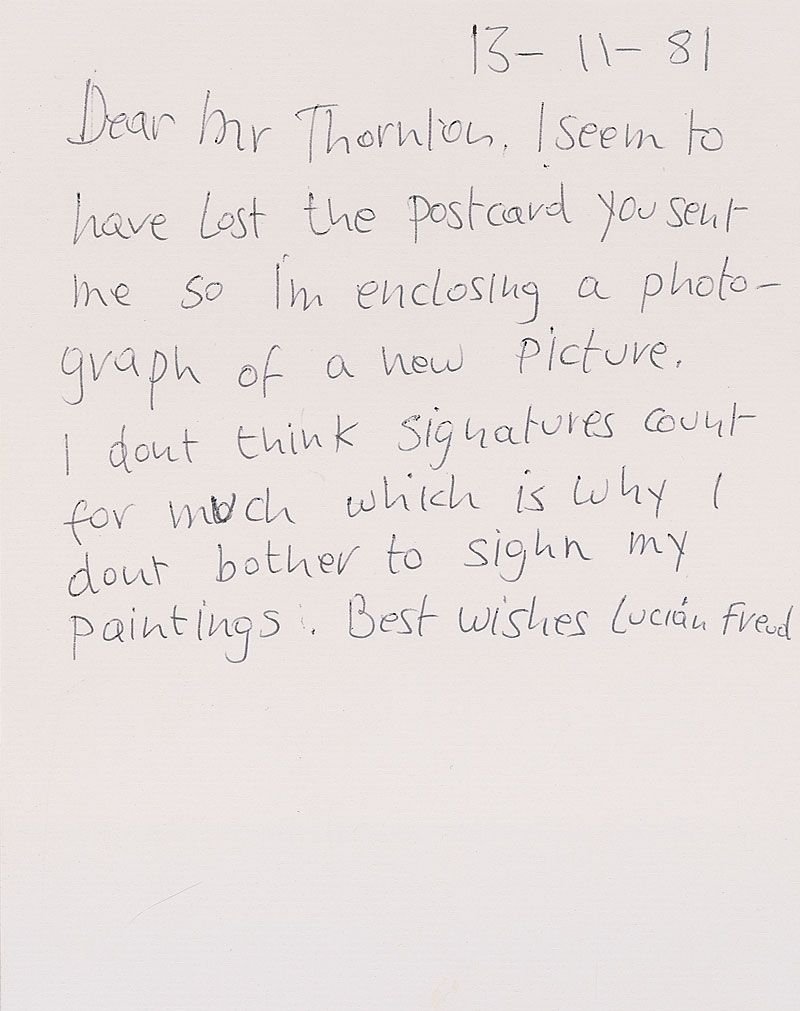 13- 11- 81
Dear Mr Thornton, I seem to
have lost the postcard you sent
me so I'm enclosing a photo-
graph of a new picture.
I dont think signatures count
for much which is why I
dont bother to sighn my
paintings. Best wishes Lucian Freud